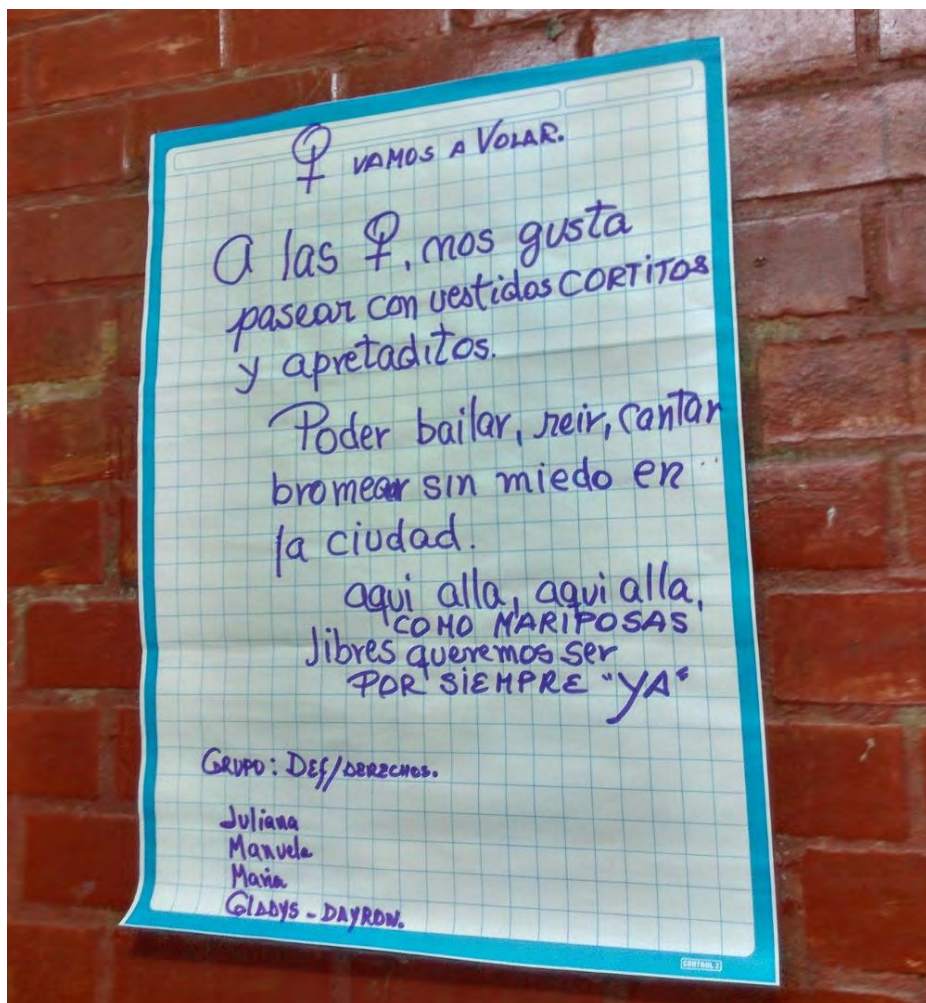 ♀ VAMOS A VOLAR.
A las ♀, nos gusta
pasear con vestidos CORTITOS
y apretaditos.
Poder bailar, reir, cantar
bromear sin miedo en
la ciudad.
aqui alla, aqui alla,
COMO MARIPOSAS
libres queremos ser
POR SIEMPRE "YA"
GRUPO: DEf/DERECHOS.
Juliana
Manuela
Maria
GLADYS - DAYRON.
CONTROL 2